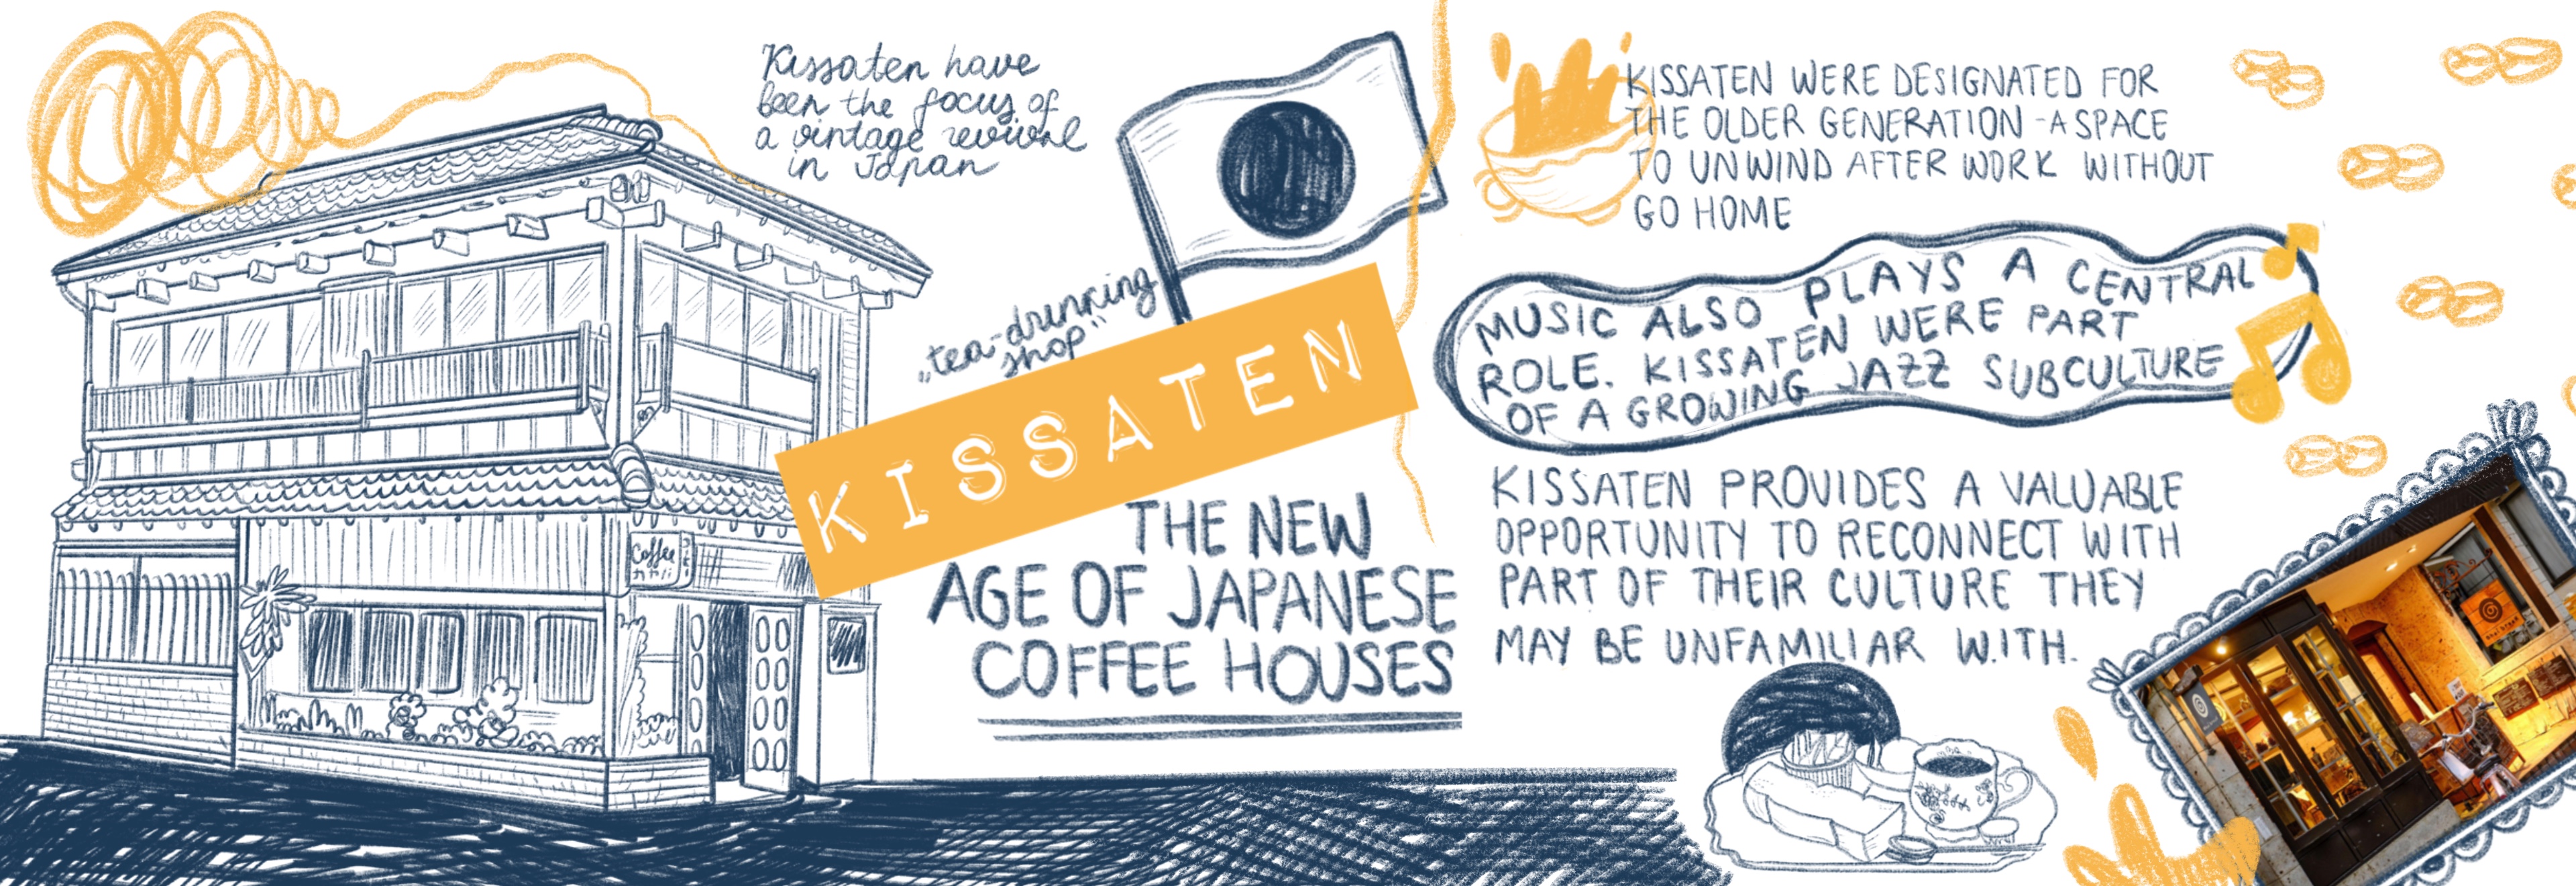 Kissaten have
been the focus of
a vintage revival
in Japan
„tea-drinking
shop"
KISSATEN
THE NEW
AGE OF JAPANESE
COFFEE HOUSES
Coffee
KISSATEN WERE DESIGNATED FOR
THE OLDER GENERATION - A SPACE
TO UNWIND AFTER WORK WITHOUT
GO HOME
MUSIC ALSO PLAYS A CENTRAL
ROLE. KISSATEN WERE PART
OF A GROWING JAZZ SUBCULTURE
KISSATEN PROVIDES A VALUABLE
OPPORTUNITY TO RECONNECT WITH
PART OF THEIR CULTURE THEY
MAY BE UNFAMILIAR WITH.